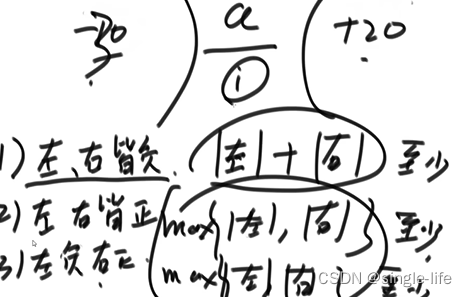 a
+20
①
1) 左、右皆负. |左| + |右| 至少
2) 左 右皆正 max{|左|, |右|} 至少.
3) 左负右正 max{|左| |右| } 至少
CSDN @single-life